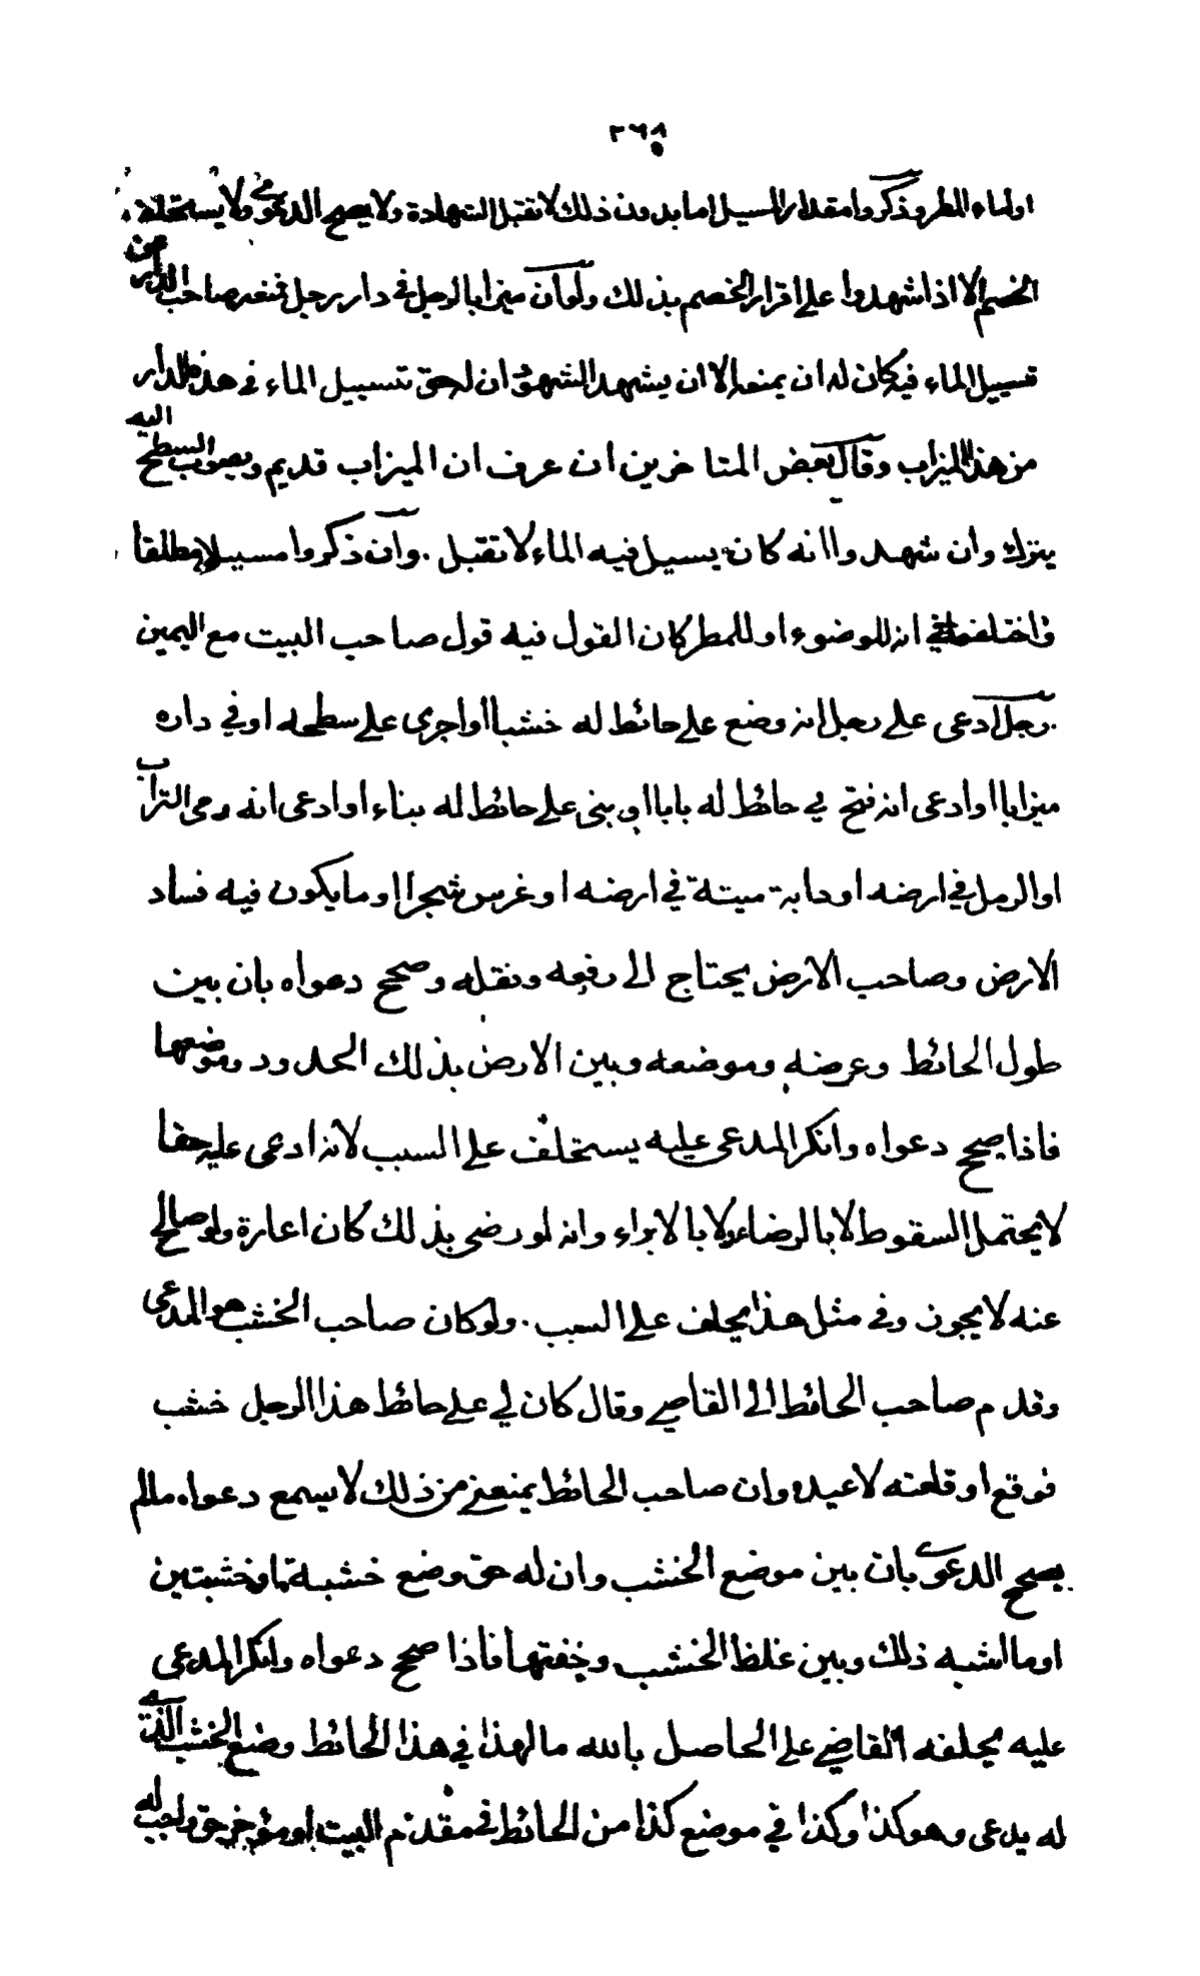 ٢٦٨
او لماء المطر وذكروا مقدار المسيل اما بدون ذلك لا تقبل الشهادة ولا يصح الدعوى ولا يستحلف
الخصم الا اذا شهدوا على اقرار الخصم بذلك ولو كان ميزابا لرجل في دار رجل فمنعه صاحب الدار عن
تسييل الماء فيه كان له ان يمنعه الا ان يشهد الشهود ان له حق تسييل الماء في هذه الدار
من هذا الميزاب وقال بعض المتاخرين ان عرف ان الميزاب قديم وتصويب السطح اليه
يترك وان شهدوا انه كان يسيل فيه الماء لا تقبل . وان ذكروا مسيلا مطلقا
فاختلفا في انه للوضوء او للمطر كان القول فيه قول صاحب البيت مع اليمين
. رجل ادعى على رجل انه وضع على حائط له خشبا او اجرى على سطحه او في داره
ميزابا او ادعى انه فتح في حائط له بابا او بنى على حائط له بناء او ادعى انه رمى التراب
او الرمل في ارضه او دابة ميتة في ارضه او غرس شجرا او ما يكون فيه فساد
الارض وصاحب الارض يحتاج الى رفعه ونقله وصحح دعواه بان بين
طول الحائط وعرضه وموضعه وبين الارض بذلك الحدود وموضعها
فاذا صحح دعواه وانكر المدعى عليه يستحلف على السبب لانه ادعى عليه حقا
لا يحتمل السقوط لا بالرضاء ولا بالابراء وانه لو رضى بذلك كان اعارة ولو صالح
عنه لا يجوز وفى مثل هذا يحلف على السبب . ولو كان صاحب الخشب هو المدعى
وقدم صاحب الحائط الى القاضي وقال كان لي على حائط هذا الرجل خشب
فوقع او قلعته لاعيده وان صاحب الحائط يمنعني من ذلك لا يسمع دعواه مالم
يصحح الدعوى بان بين موضع الخشب وان له حق وضع خشبة او خشبتين
او ما اشبه ذلك وبين غلظ الخشب وخفتها فاذا صحح دعواه وانكر المدعى
عليه يحلفه القاضي على الحاصل بالله ما لهذا في هذا الحائط وضع الخشب الذي
له يدعى وهو كذا وكذا في موضع كذا من الحائط في مقدم البيت او مؤخره حق واجب له